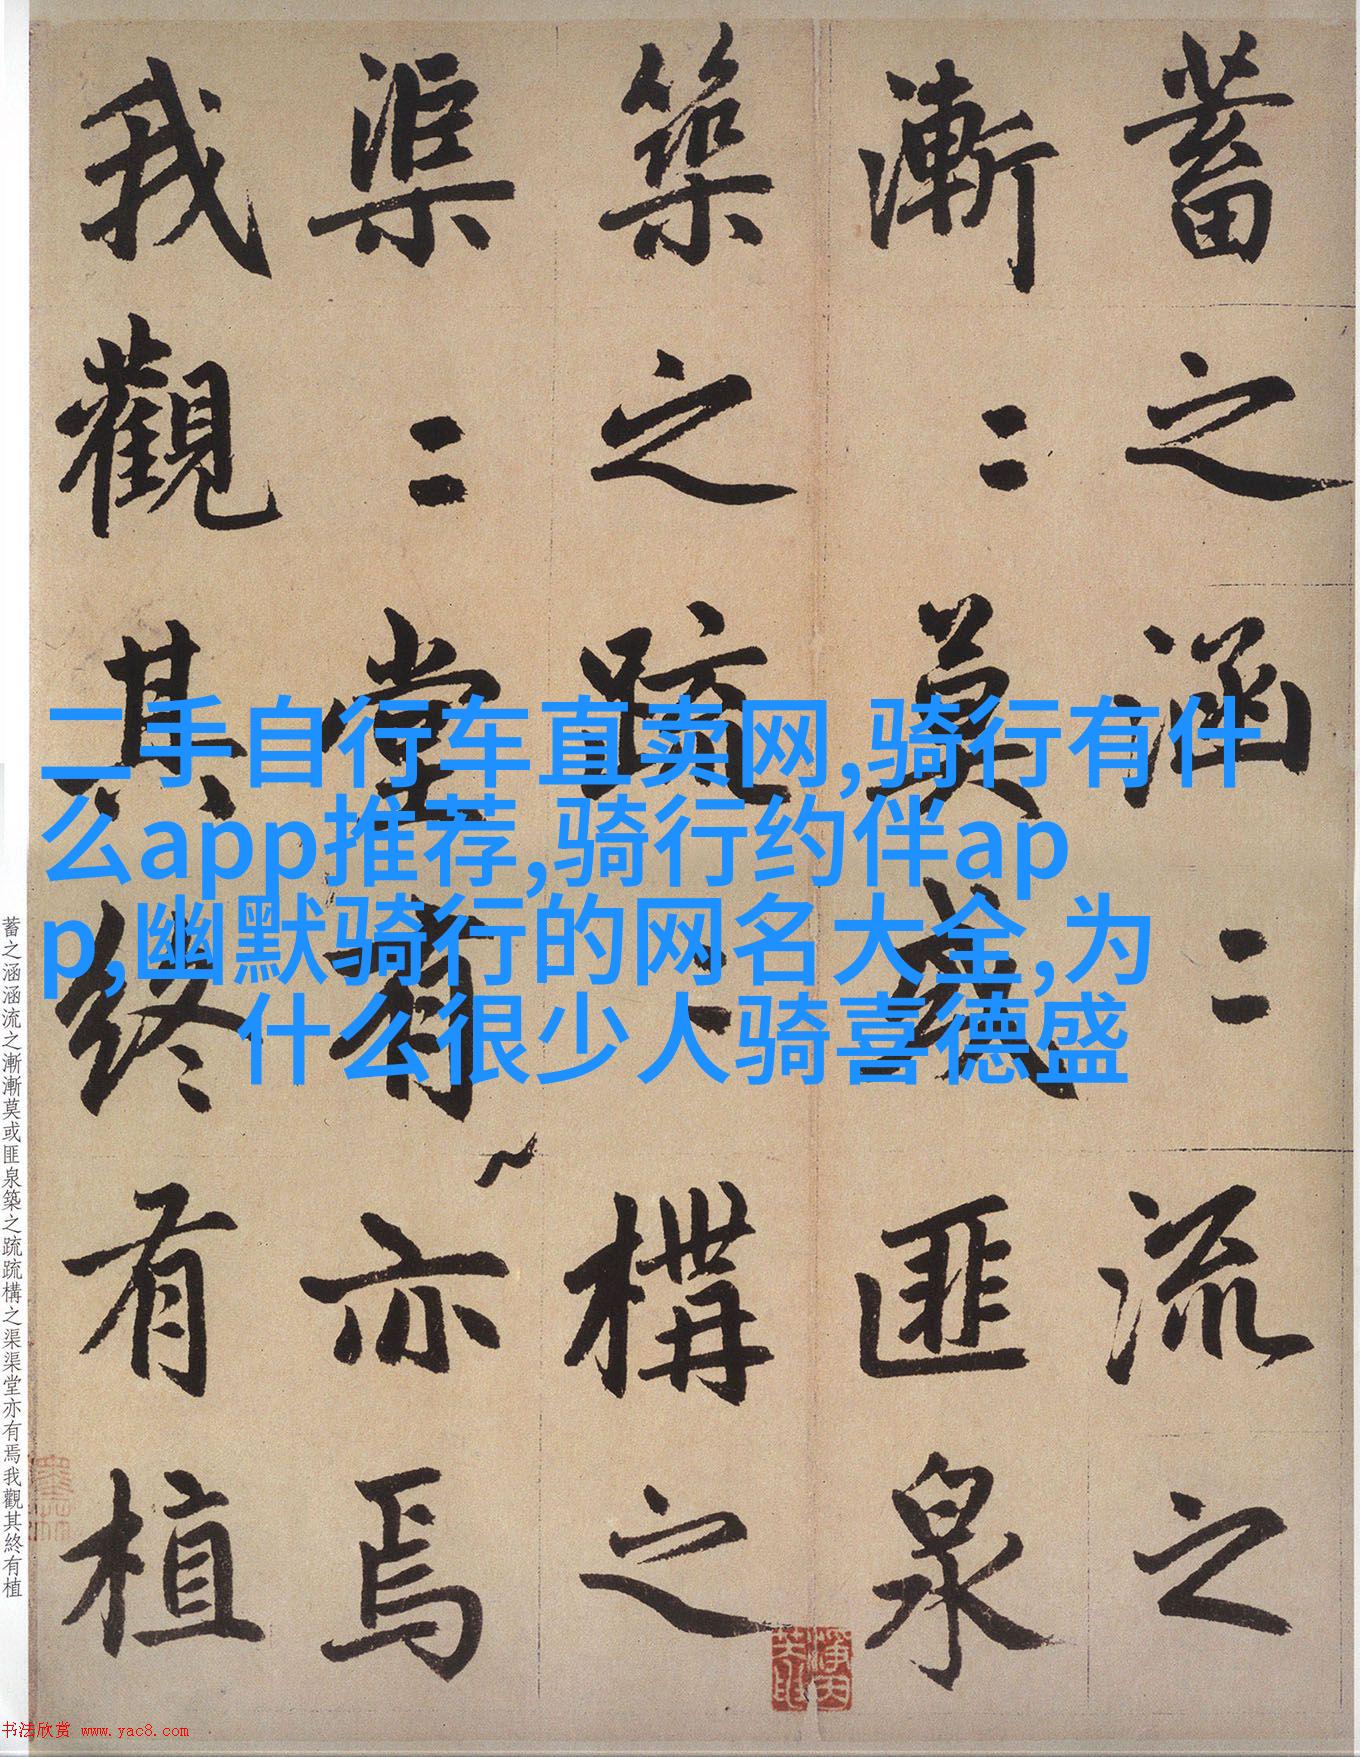 蓄之涵〻流之
漸〻莫或匪泉
築之疏〻構之
渠〻堂有亦焉
我觀其終有植
二手自行车直卖网,骑行有什
么app推荐,骑行约伴ap
p,幽默骑行的网名大全,为
什么很少人骑喜德盛
蓄之涵涵流之漸漸莫或匪泉築之疏疏構之渠渠堂亦有焉我觀其終有植
书法欣赏 www.yac8.com